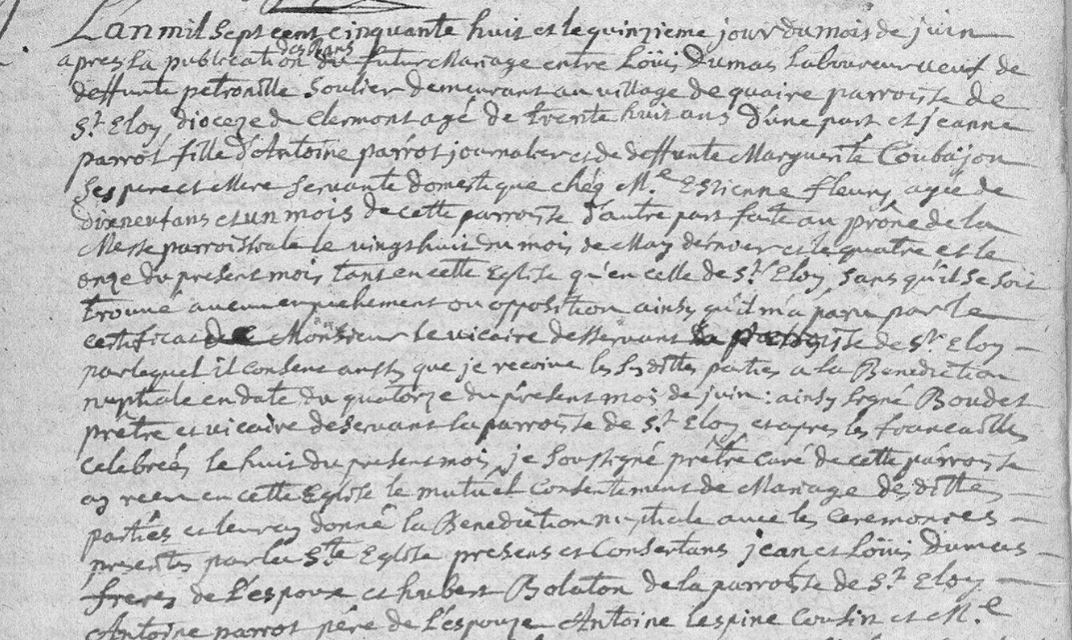 Lan mil sept cent cinquante huit et le quinzieme jour du mois de juin
apres la publication des Bans du futur Mariage entre Loüis Dumas Laboureur veuf de
deffunte petronille Soulier demeurant au village de quaire parroisse de
St. Eloy, dioceze de Clermont agé de trente huit ans d'une part et jeanne
parrot fille d'Antoine parrot journalier et de deffunte Marguerite Coubajou
Ses pere et Mere servante domestique chéz Mre. Estienne fleury agée de
dixneuf ans et un mois de cette parroisse d'autre part faite au prône de la
Messe parroissiale le vingt huit du mois de May dernier et le quatre et le
onze du present mois tant en cette Eglise qu'en celle de St. Eloy, sans qu'il se soit
trouvé aucun empechement ou opposition ainsy qu'il m'a paru par le
certificat de Monsieur le vicaire desservant la parroisse de St Eloy
par lequel il consent aussy que je reçoive les sdittes parties a la Benediction
nuptiale en date du quatorze du présent mois de juin : ainsy signé Boudet
prêtre et vicaire deservant la parroisse de St. Eloy et apres les fiancailles
Celebreés le huit du present mois, je soussigné prêtre curé de cette parroisse
ay receu en cette Eglise le mutuel consentement de Mariage des dittes
parties et leur ay donné la Benediction nuptiale avec les ceremonies
prescrites par la Ste Eglise presens et Consentans jean et Loüis Dumas
freres de L'epoux et hubert Bolaton de la parroisse de St. Eloy
Antoine parrot père de L'epouze Antoine lespine Cousin et Mre